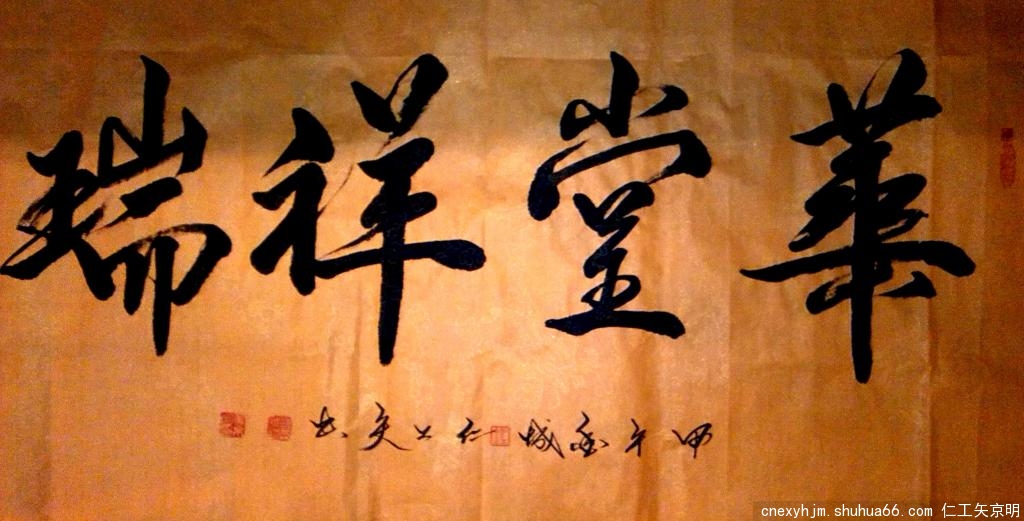 華堂祥瑞
甲午金城仁工矢书
cnexyhjm.shuhua66.com 仁工矢京明